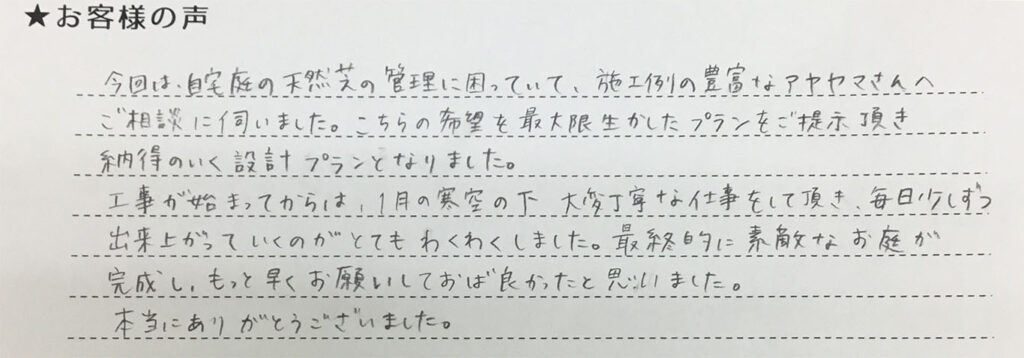 ★お客様の声
今回は、自宅庭の天然芝の管理に困っていて、施工例の豊富なアヤヤマさんへ
ご相談に伺いました。こちらの希望を最大限生かしたプランをご提示頂き
納得のいく設計プランとなりました。
工事が始まってからは、1月の寒空の下 大変丁寧な仕事をして頂き、毎日少しずつ
出来上がっていくのがとてもわくわくしました。最終的に素敵なお庭が
完成し、もっと早くお願いしておば良かったと思いました。
本当にありがとうございました。